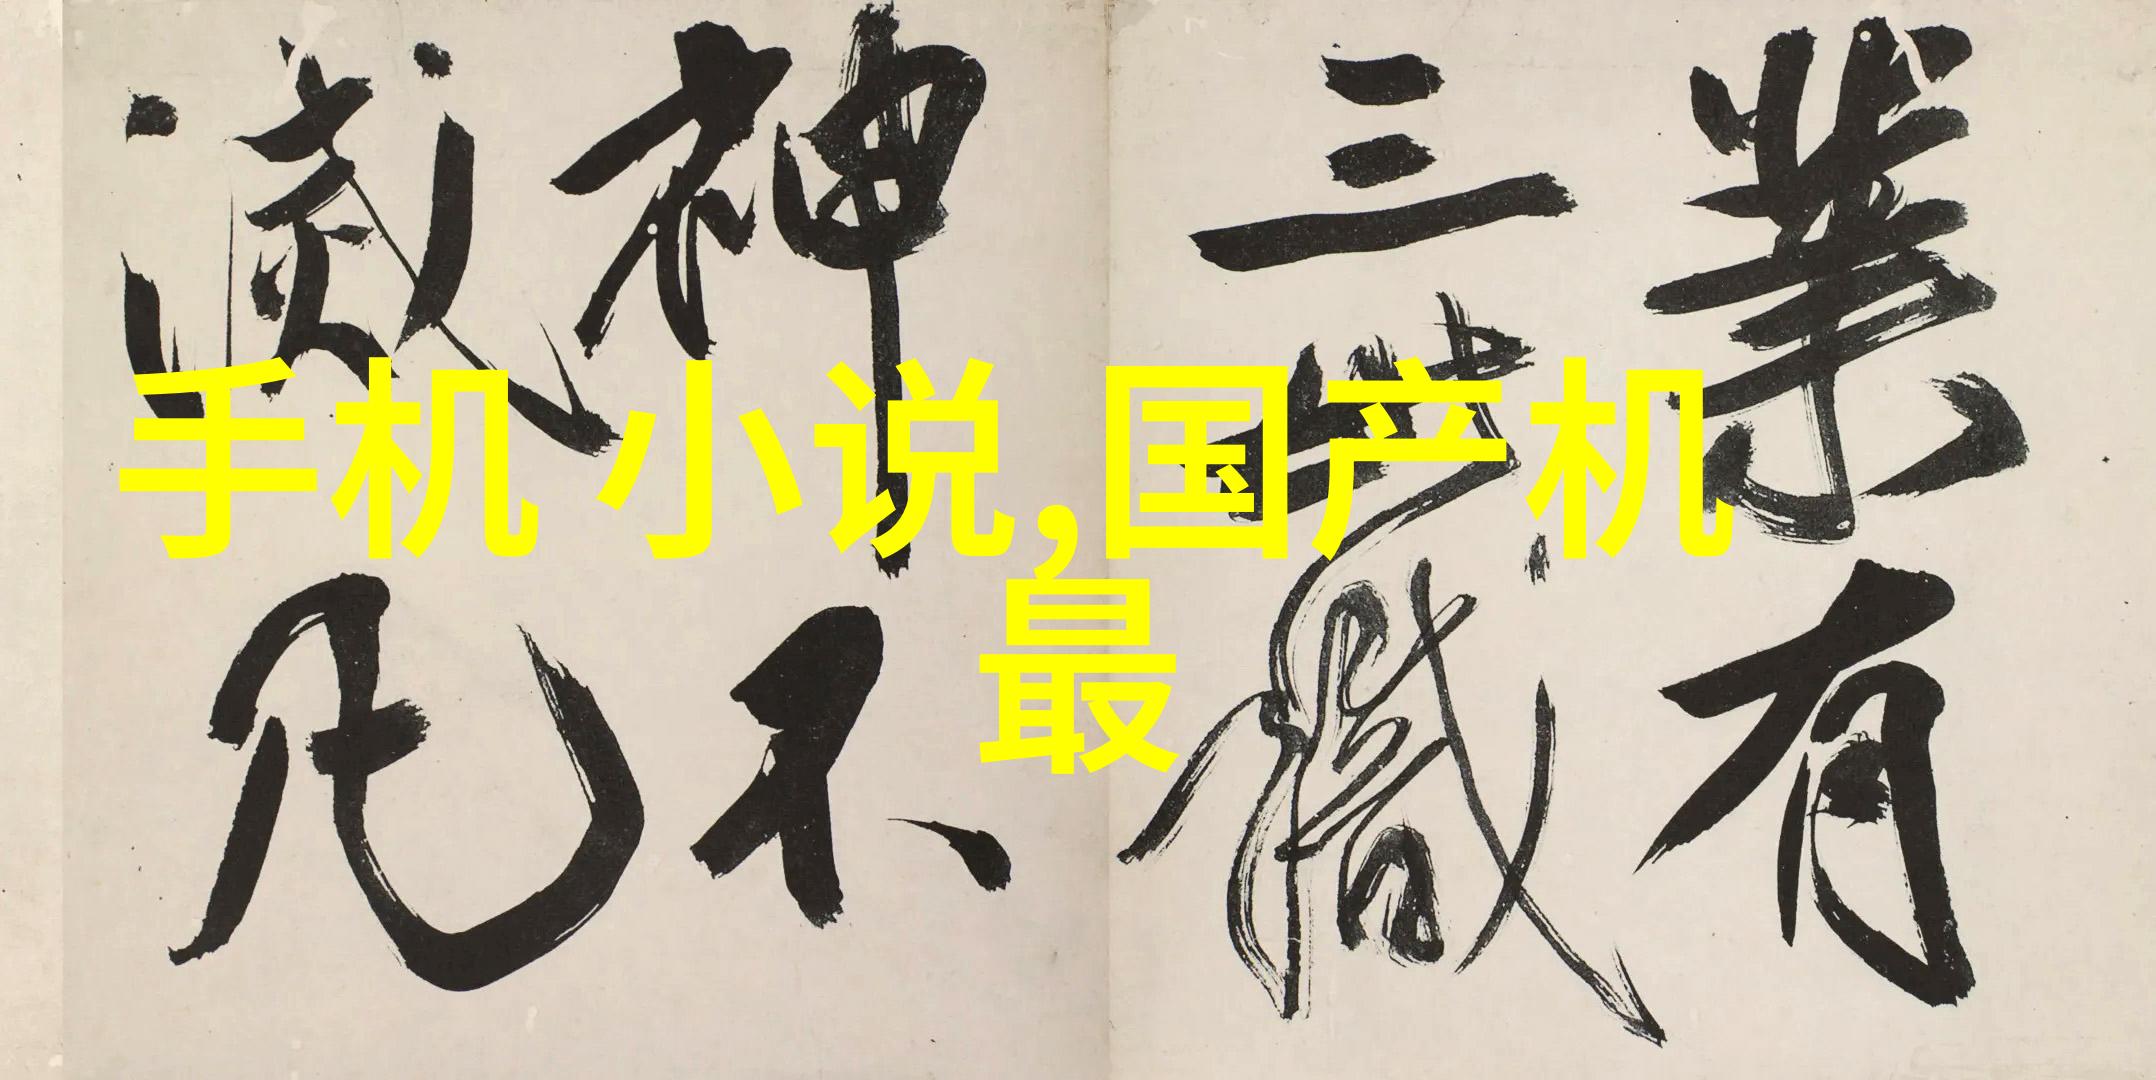 手机 小说,国产机
最
業有
三世識
神不
滅凡